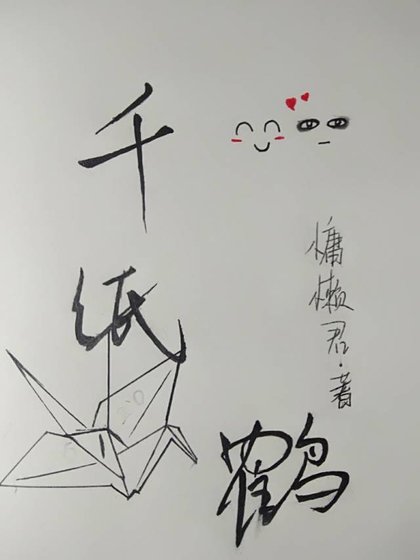 千纸鹤
慵懒君·著